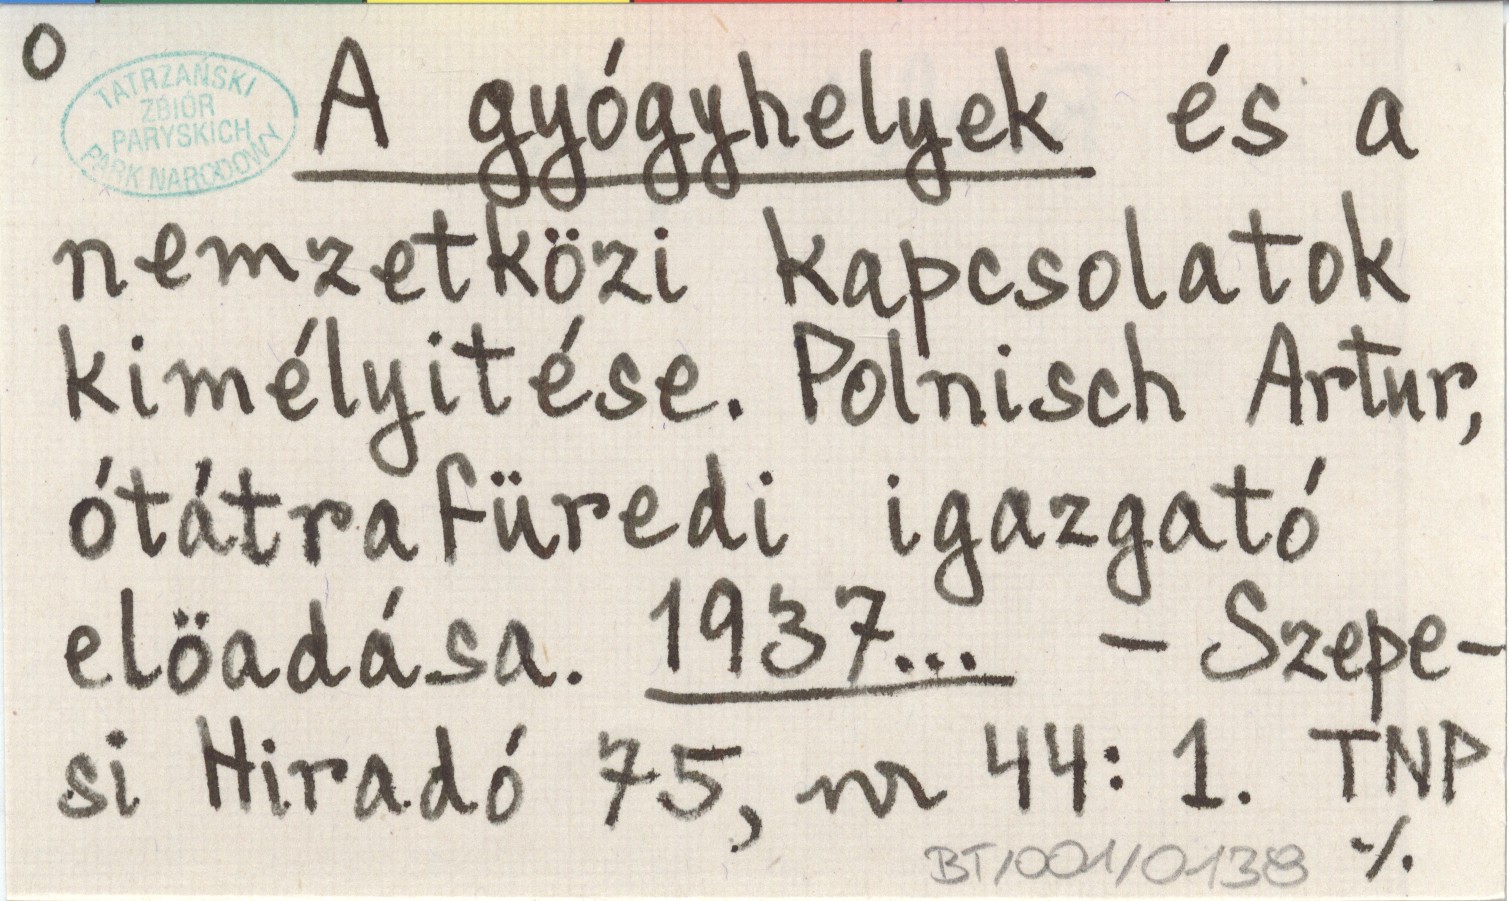 O
TATRZAŃSKI
ZBIÓR
PARYSKICH
PARK NARODOWY
A gyógyhelyek és a
nemzetközi kapcsolatok
kimélyitése. Polnisch Artur,
ótátrafüredi igazgató
elöadása. 1937... – Szepe-
si Hiradó 75, nr 44: 1. TNP
·/.
BT/001/0138